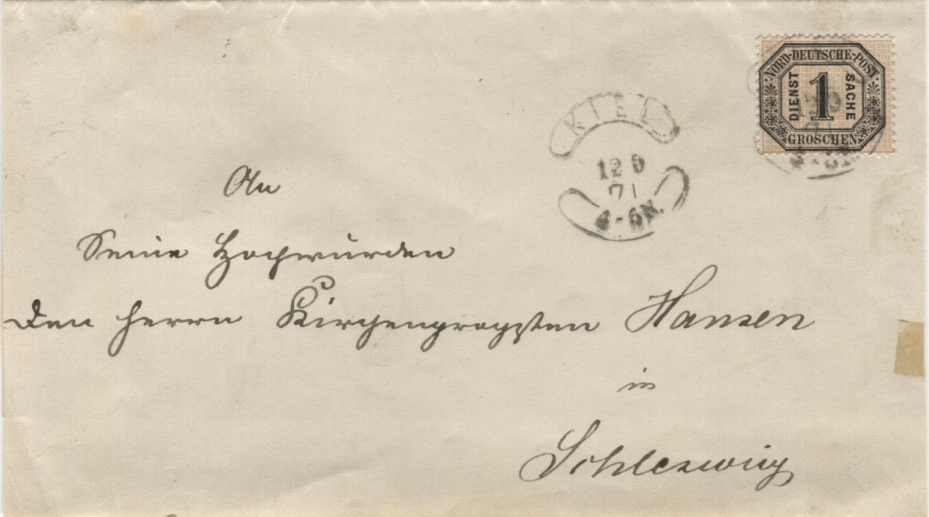 NORD-DEUTSCHE-POST
DIENST 1 SACHE
GROSCHEN
KIEL
12 9
71
4-5N.
An
Seine Hochwürden
den Herrn Kirchenpropsten Hansen
in
Schleswig